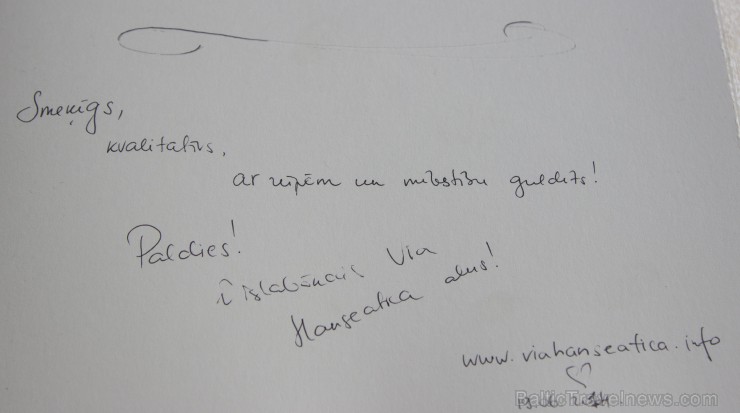 Smeķīgs,
kvalitatīvs,
ar rūpēm un mīlestību
Paldies!
Vislabākais Via
Hanseatica alus!
www.viahanseatica.info
BalticTravelnews.com